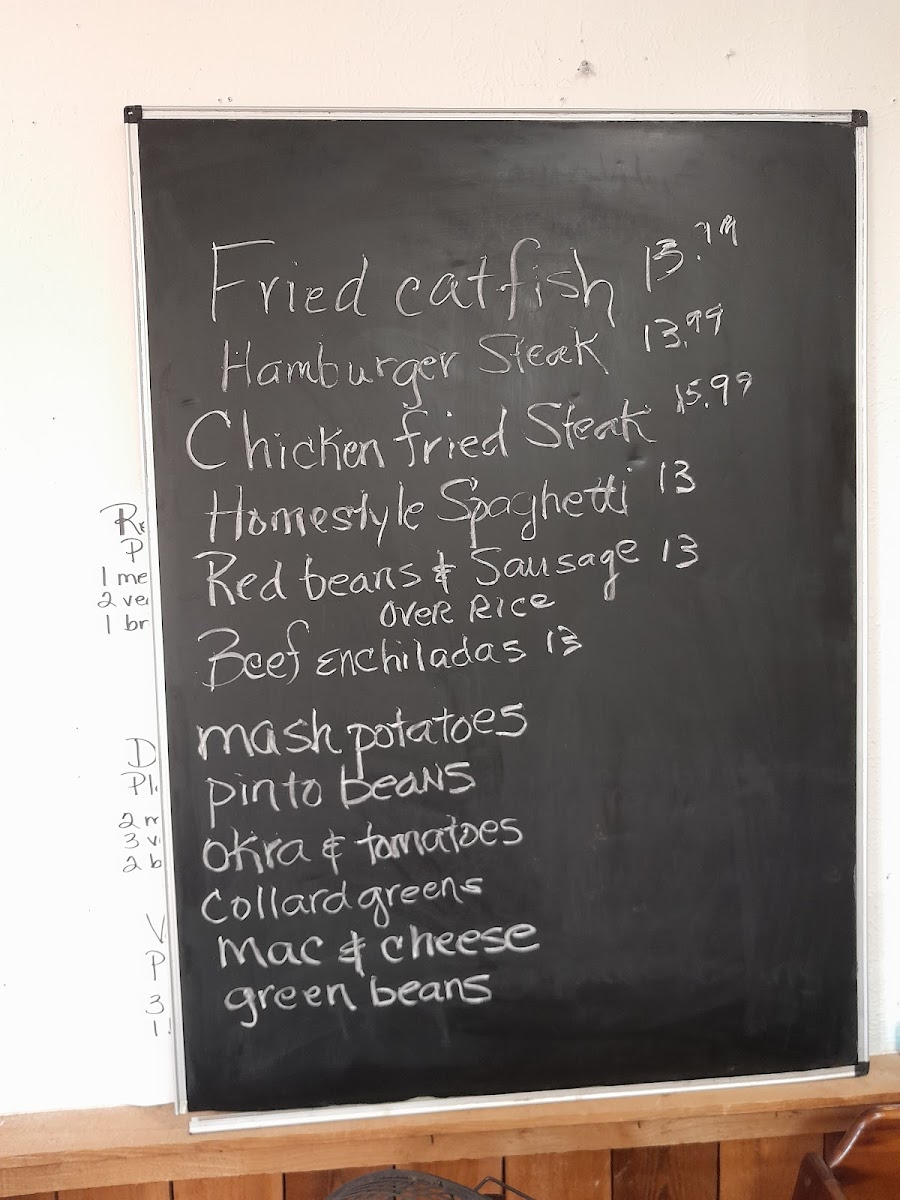 Fried catfish 13.99
Hamburger Steak 13.99
Chicken fried Steak 15.99
Homestyle Spaghetti 13
Red beans & Sausage 13
OVER RICE
Beef Enchiladas 13
mash potatoes
pinto beans
okra & tomatoes
Collard greens
Mac & cheese
green beans
P
1 me
2 ve
1 br
D
Pl
2 m
3 v
2 b
V
P
3
1